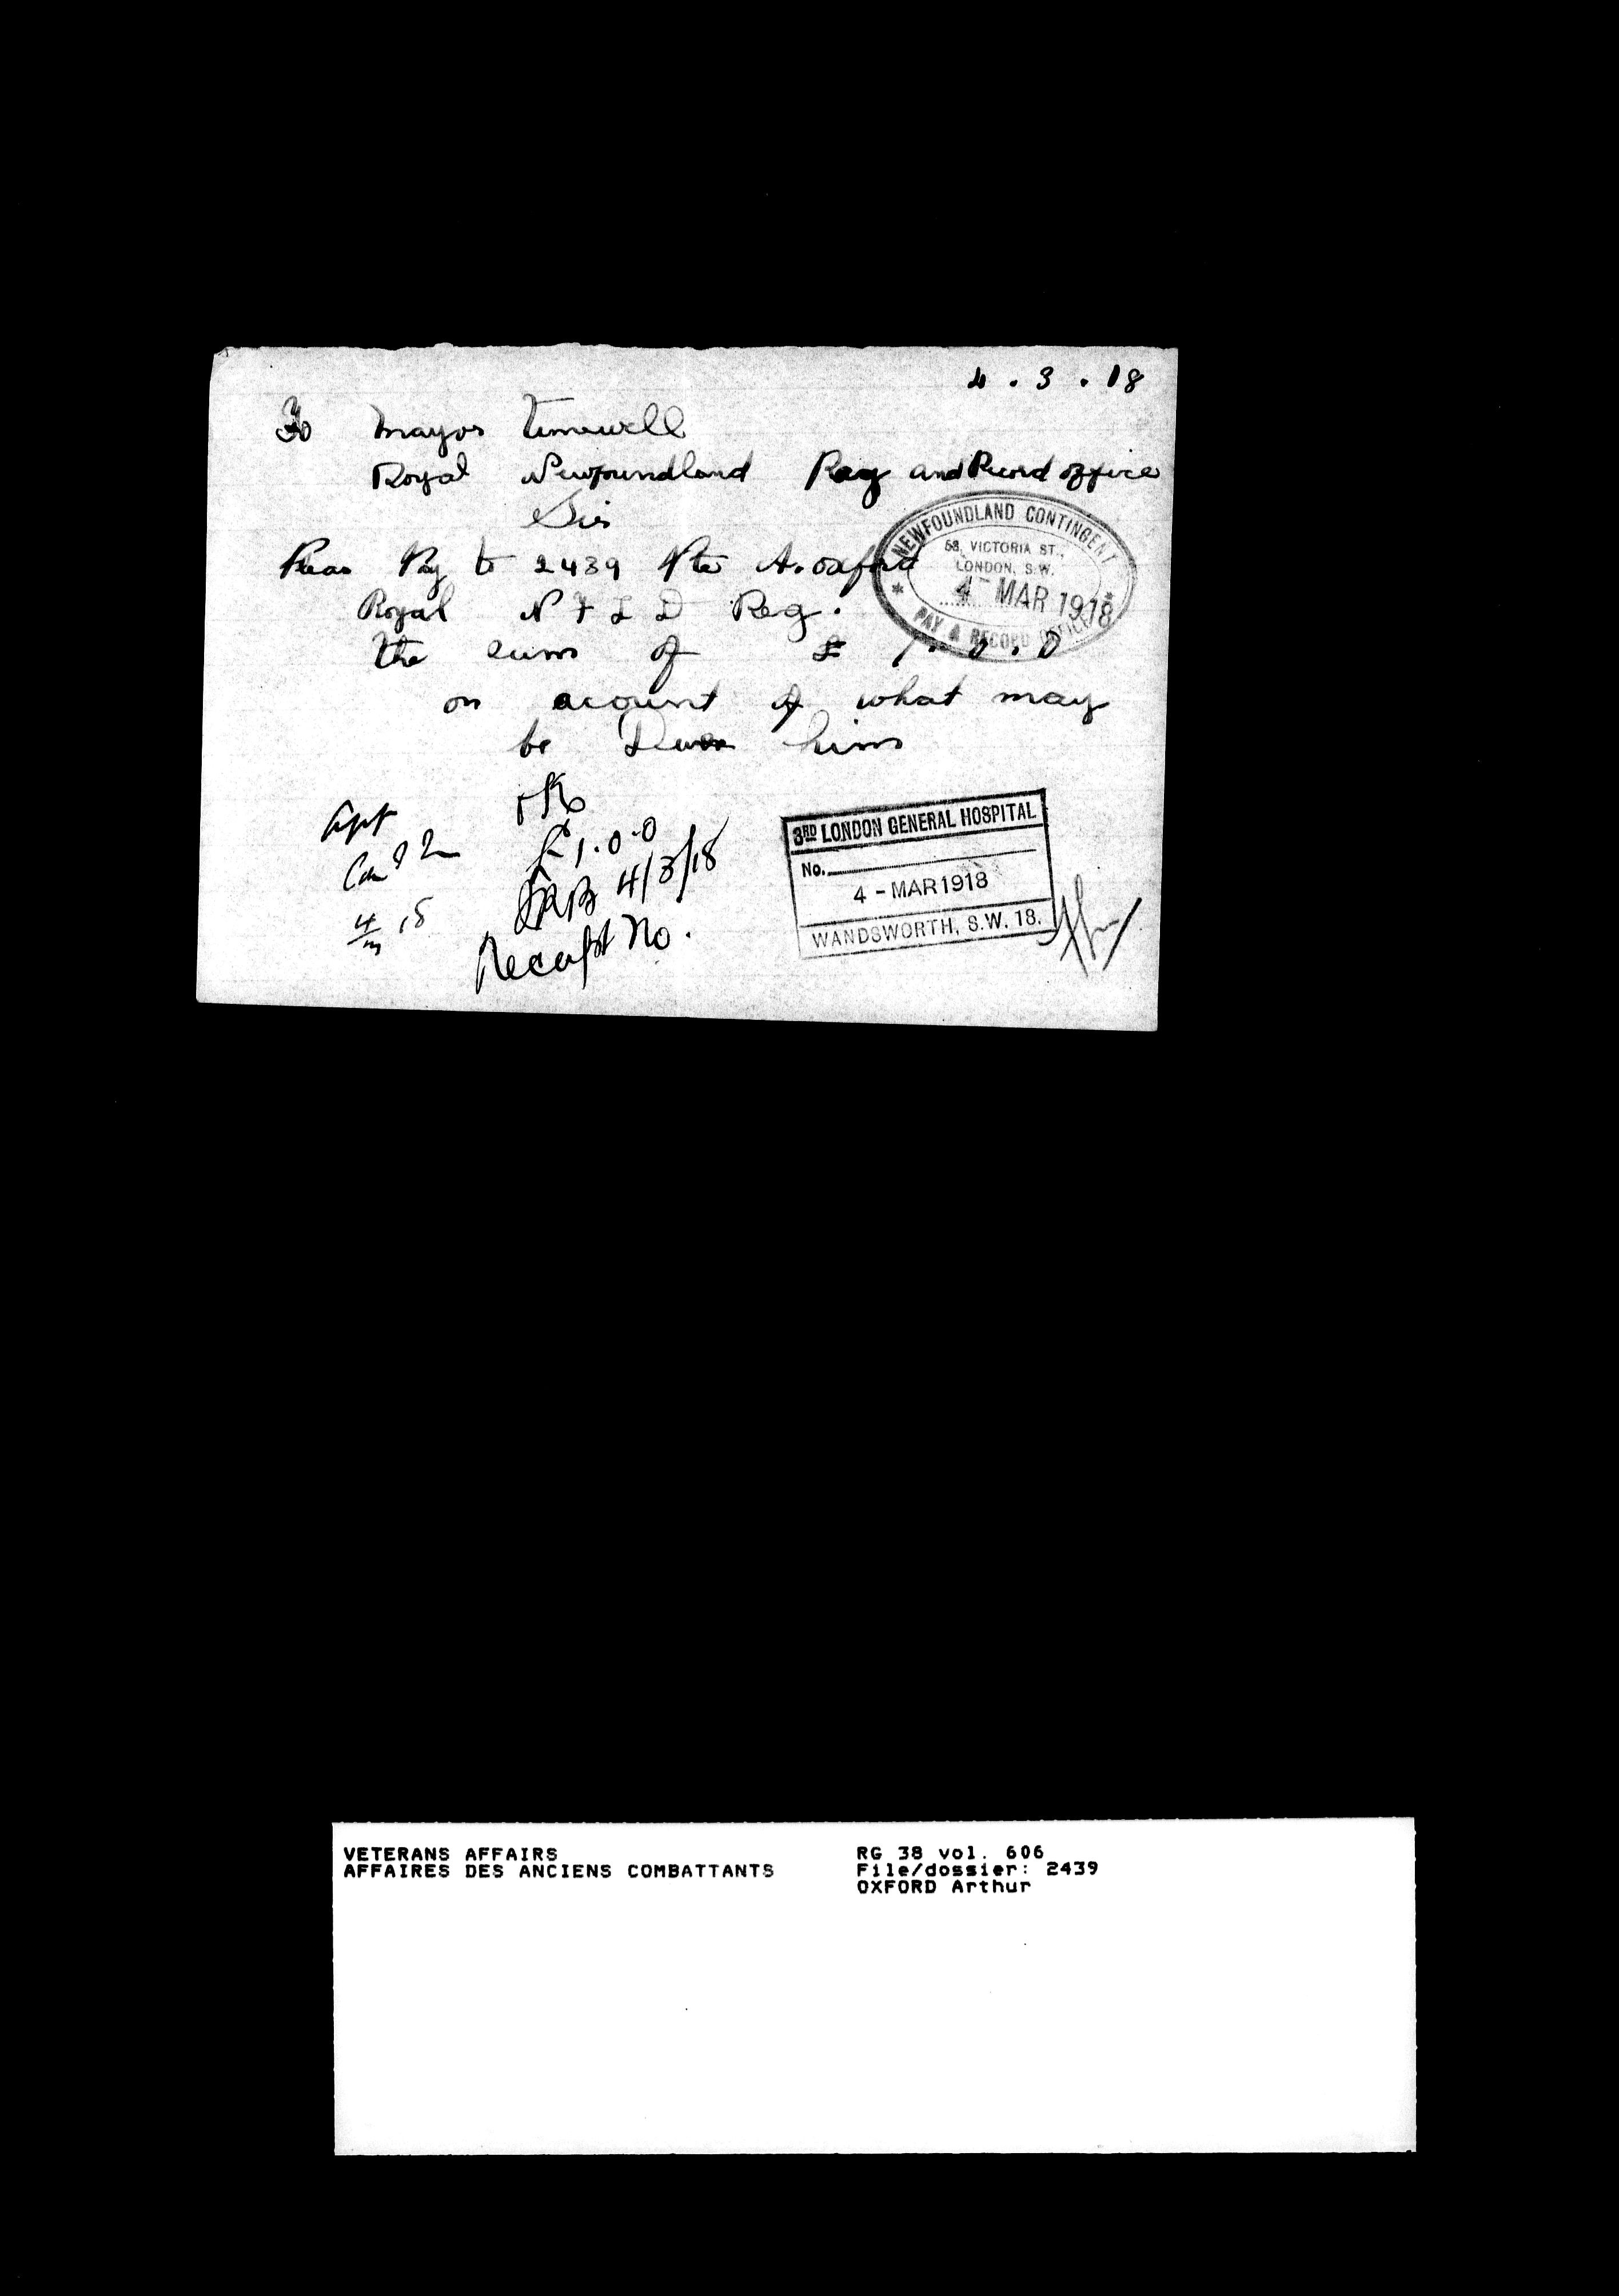 4 . 3 . 18
To Mayor Timewell
Royal Newfoundland Pay and Record office
Sir
Pleas Pay to 2439 Pte A. Oxford
Royal N F L D Reg.
the sum of £ 1. 0. 0
on acount of what may
be Due him
NEWFOUNDLAND CONTINGENT
58, VICTORIA ST.,
LONDON, S.W.
4 - MAR 1918
* PAY & RECORD OFFICE *
OK
£1.0.0
4/3/18
Receipt No.
4/3 18
3RD LONDON GENERAL HOSPITAL
No.
4 - MAR 1918
WANDSWORTH, S.W. 18.
VETERANS AFFAIRS
AFFAIRES DES ANCIENS COMBATTANTS
RG 38 vol. 606
File/dossier: 2439
OXFORD Arthur